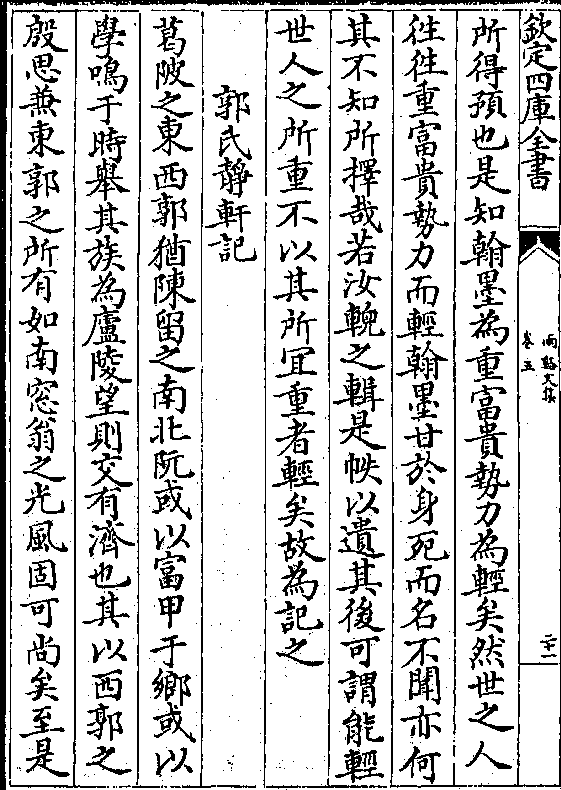 欽定四庫全書
卷五
二十一
所得預也是知翰墨為重富貴勢力為輕矣然世之人
徃徃重富貴勢力而輕翰墨甘於身死而名不聞亦何
其不知所擇哉若汝輗之輯是帙以遺其後可謂能輕
世人之所重不以其所宜重者輕矣故為記之
郭氏靜軒記
葛陂之東西郭猶陳留之南北阮或以富甲于鄉或以
學鳴于時舉其族為廬陵望則交有濟也其以西郭之
殷思兼東郭之所有如南窓翁之光風固可尚矣至是